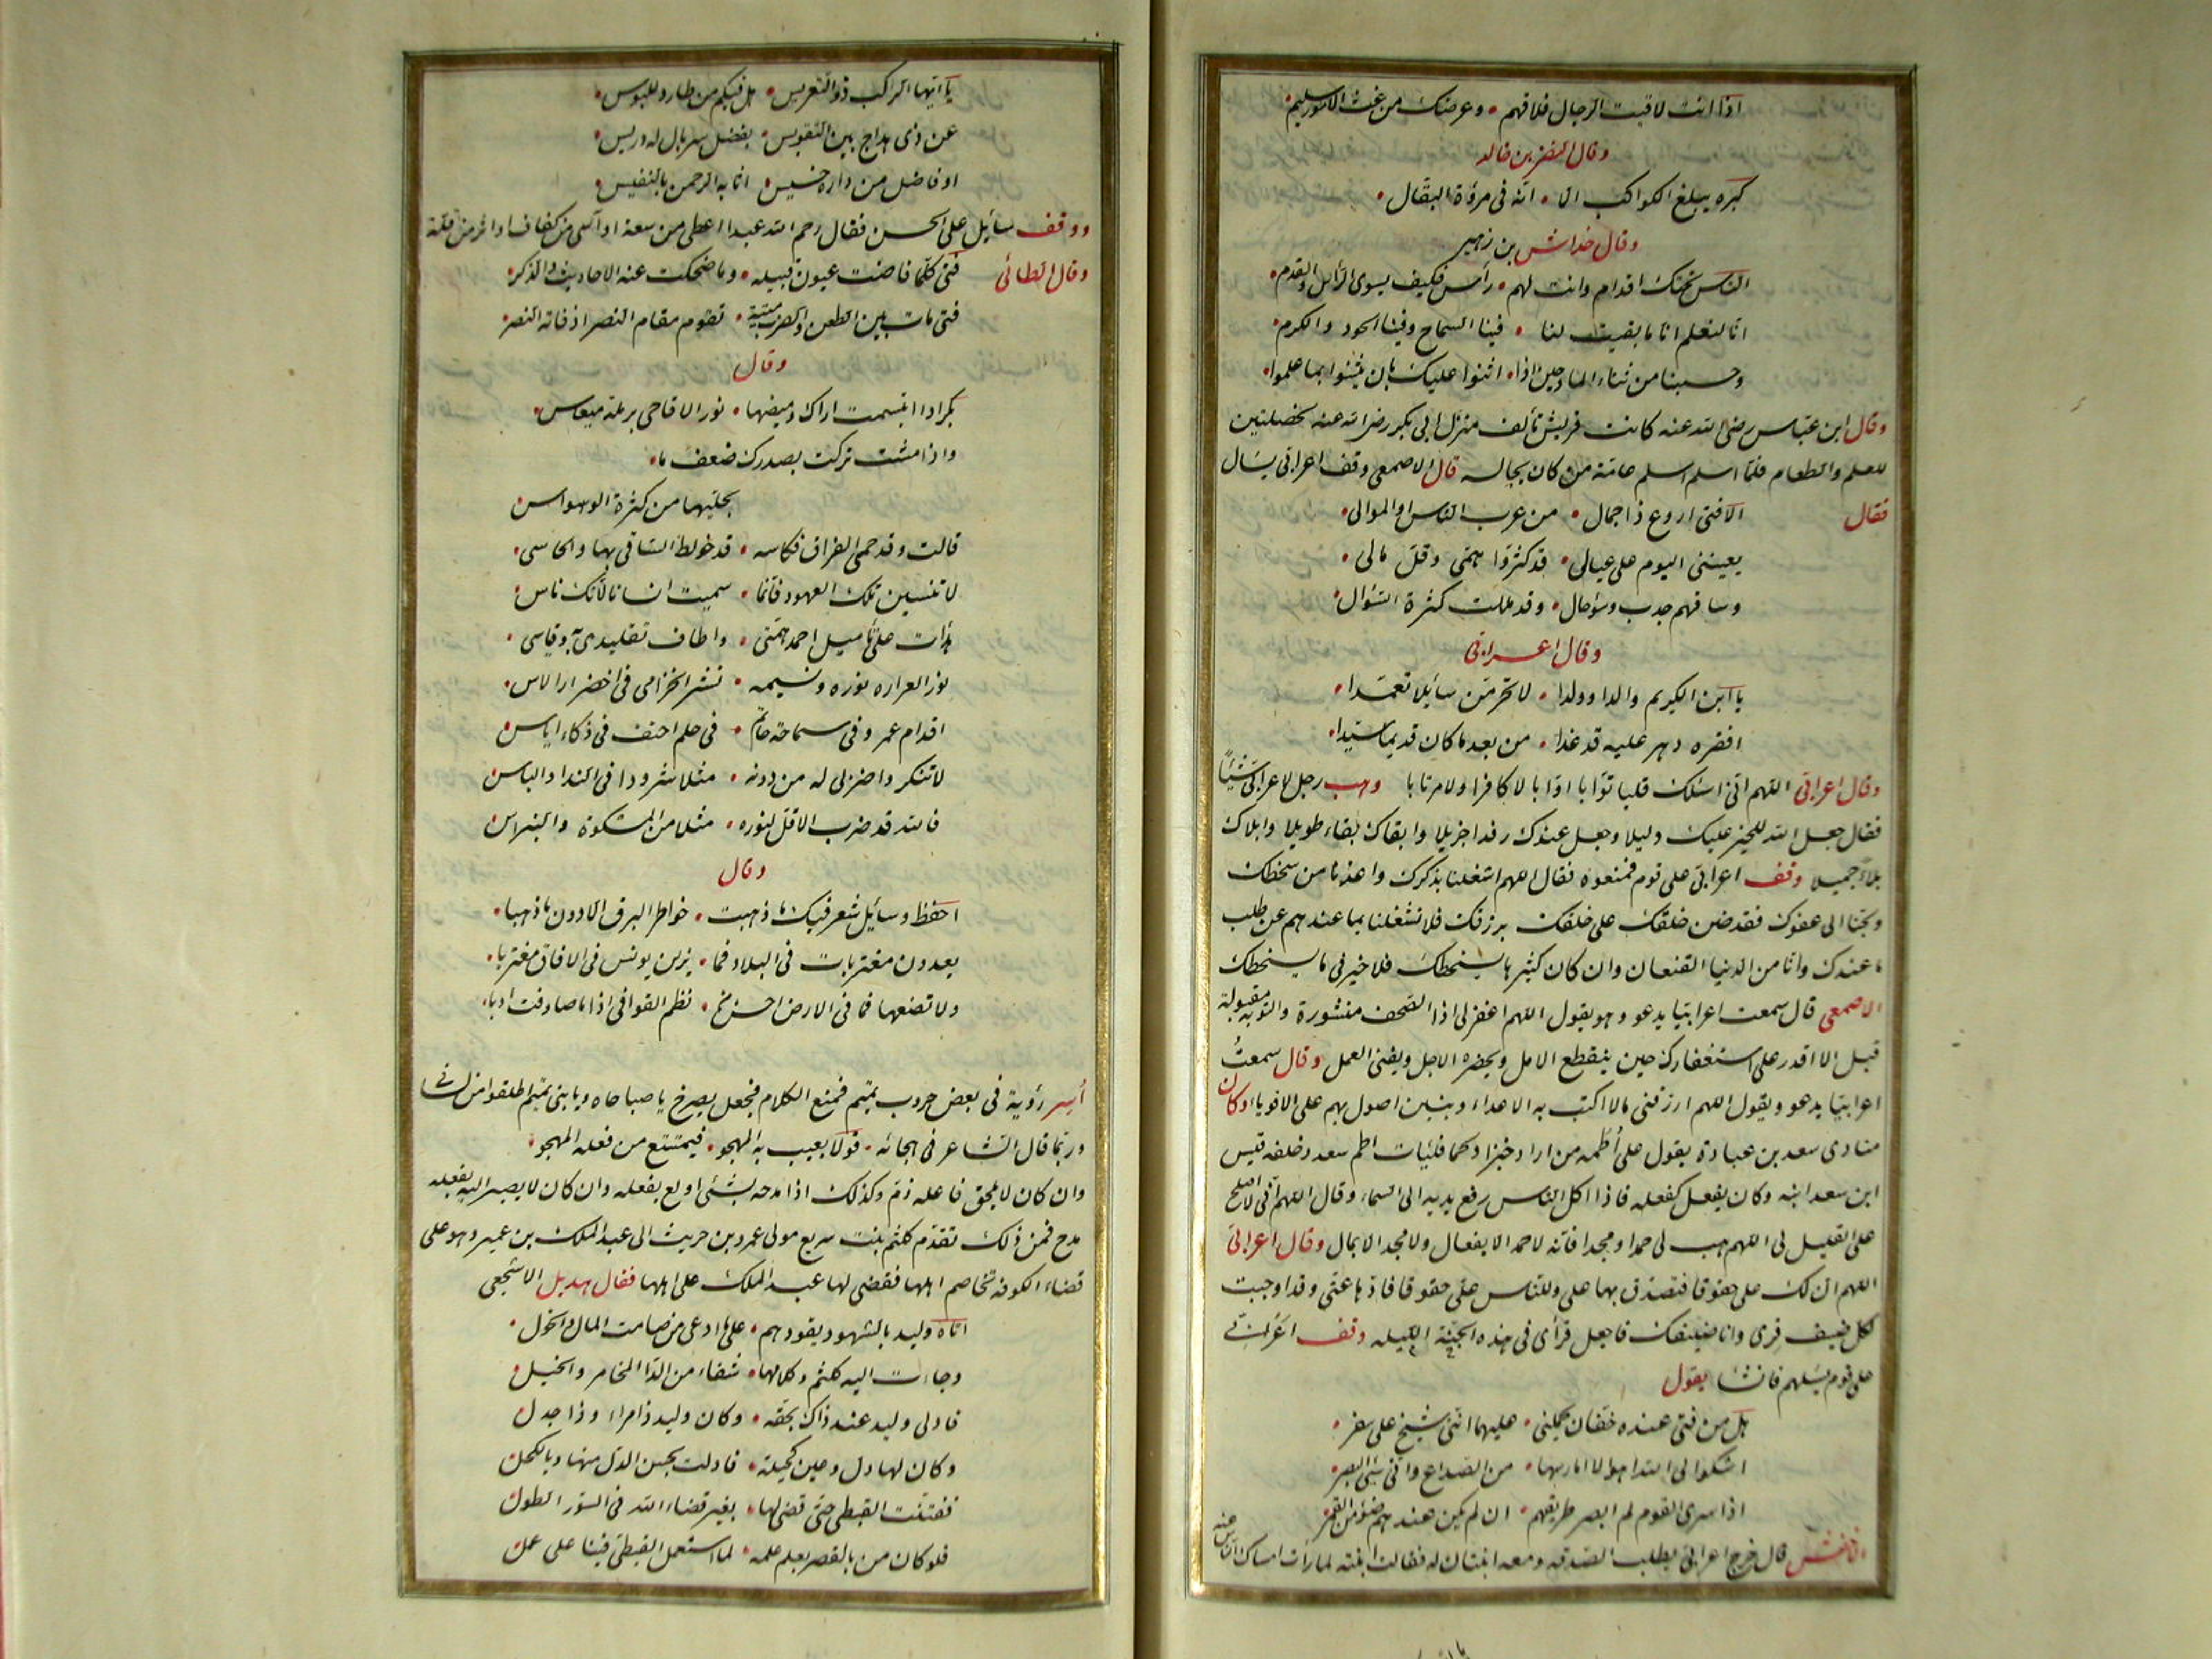 اذا انت لاقيت الرجال فلاقهم • وعرضك من غث الامور سليم
وقال النضر بن خالد
كبره يبلغ الكواكب الا • انه فى مروّة البقّال
وقال خداش بن زهير
الناس تحتك اقدام وانت لهم • رأس فكيف يسوى الرأس والقدم
انا لنعلم انا ما بقيت لنا • فينا السماح وفينا الجود والكرم
وحسبنا من ثناء المادحين اذا • اثنوا عليك بان يثنوا بما علموا
وقال ابن عباس رضى الله عنه كانت قريش تألف منزل ابى بكر رضى الله عنه لخصلتين
للعلم والطعام فلما اسلم اسلم عامة من كان يجالسه قال الاصمعى وقف اعرابى يسال
فقال الا فتى اروع ذا جمال • من عرب الناس او الموالى
يعيننى اليوم على عيالى • قد كثروا همّى وقلّ مالى
وساقهم جدب وسؤ حال • وقد مللت كثرة السّؤال
وقال اعرابى
يا ابن الكريم والدا وولدا • لا تحرمن سائلا تعمّدا
افقره دهر عليه قد غدا • من بعد ما كان قديما سيدا
وقال اعرابى اللهم انى اسئلك قلبا توّابا اوّابا لا كافرا ولا مرتابا وهب رجل لاعرابى شيئا
فقال جعل الله للخير عليك دليلا وجعل عندك رفدا جزيلا وابقاك بقاء طويلا وابلاك
بلاء جميلا وقف اعرابى على قوم فمنعوه فقال اللهم اشغلنا بذكرك واعذنا من سخطك
الى عفوك فقد ضن خلقك على خلقك برزقك فلا تشغلنا بما عندهم عن طلب
ما عندك واتنا من الدنيا القنعان وان كان كثيرها يسخطك فلا خير فى ما يسخطك
الاصمعى قال سمعت اعرابيا يدعو وهو يقول اللهم اغفر لى اذا الصحف منشورة والتوبة مقبولة
قبل الا اقدر على استغفارك حين ينقطع الامل ويحضر الاجل ويفنى العمل وقال سمعتُ
اعرابيا يدعو ويقول اللهم ارزقنى مالا اكبت به الاعداء وبنين اصول بهم على الاقويا وكان
منادى سعد بن عبادة يقول على أُطُمه من اراد خبزا ولحما فليات اطم سعد وخلفه قيس
ابن سعد ابنه وكان يفعل كفعله فاذا اكل الناس رفع يديه الى السماء وقال اللهم انى لا اصلح
على القليل اللهم هب لى حمدا ومجدا فانه لا حمد الا بفعال ولا مجد الا بمال وقال اعرابى
اللهم ان لك على حقوقا فتصدق بها على وللناس على حقوقا فادّها عنّى وقد اوجبت
لكل ضيف قرى وانا ضيفك فاجعل قرأى فى هذه الليله الجنّة وقف اعرابى
على قوم يسلهم فانشا يقول
هل من فتى عنده خفّان يحملنى • عليهما اننى شيخ على سفر
اشكوا الى الله اهوالا امارسها • من الصداع وانى سئ البصر
اذا سرى القوم لم ابصر طريقهم • ان لم يكن عندهم ضؤ من القمر
قال خرج اعرابى يطلب الصدقه ومعه ابنتان له فقالت ابنته لما رات امساك الناس عنه
يا ايّها الراكب ذو التعريس • هل فيكم من طارد للبوس
عن ذى هداج بين التقويس • بفضل سربال له دريس
او فاضل من داره خسيس • اثابه الرحمن بالنفيس
ووقف سائل على الحسن فقال رحم الله عبدا اعطى من سعة او آسى من كفاف او اثر من قلة
وقال الطائى فتى كلما فاضت عيون قبيله • دما ضحكت عنه الاحاديث والذكر
فتى مات بين الطعن والضرب ميتة • تقوم مقام النصر اذ فاته النصر
وقال
بكر اذا ابتسمت اراك وميضها • نور الاقاحى برملة ميعاس
واذا مشت تركت بصدرك ضعف ما
بحليها من كثرة الوسواس
قالت وقد حمى الفراق فكاسه • قد خولط الساقى بها والحاسى
لا تنسين تلك العهود فانما • سميت انسانا لأنك ناس
هدأت على تأميل احمد همّتى • واطاف تقليدى به وقياسى
نور العراره نوره ونسيمه • نشر الخزامى فى اخضرار الاس
اقدام عمر وفى سماحة حاتم • فى حلم احنف فى ذكاء اياس
لا تنكروا ضربى له من دونه • مثلا شرودا فى الندا والباس
فالله قد ضرب الاقل لنوره • مثلا من المشكوة والنبراس
وقال
احفظ وسائل شعر فيك ما ذهبت • خواطر البرق الا دون ما ذهبا
يعدون مغتربات فى البلاد فما • يزلن يونسن فى الافاق مغتربا
ولا تضعها فما فى الارض احسن من • نظم القوافى اذا ما صادفت ادبا
أسر رؤبة فى بعض حروب تميم فمنع الكلام فجعل يصرخ يا صباحاه ويا بنى تميم اطلقوا من لسانى
وربما قال الشاعر فى هجائه • قولا يعيب به المهجو • فيمتنع من فعله المهجو
وان كان لا يلحق فاعله ذم وكذلك اذا مدحه بشئ اولع بفعله وان كان لا يصير اليه بفعله
مدح فمن ذلك تقدّم كلثم بنت سريع مولى عمرو بن حريث الى عبد الملك بن عمير وهو على
قضاء الكوفه تخاصم اهلها فقضى لها عبد الملك على اهلها فقال هذيل الاشجعى
اتاه وليد بالشهود يقودهم • على ما ادعى من صامت المال والخول
وجاءت اليه كلثم وكلامها • شفاء من الدّا المخامر والخبل
فادلى وليد عند ذاك بحقه • وكان وليد ذا مراء وذا جدل
وكان لها دل وعين كحيلة • فادلت بحسن الدل منها وبالكحل
ففتنت القبطى حتى قضى لها • بغير قضاء الله فى السّور الطول
فلو كان من بالقصر يعلم علمه • لما استعمل القبطى فينا على عمل